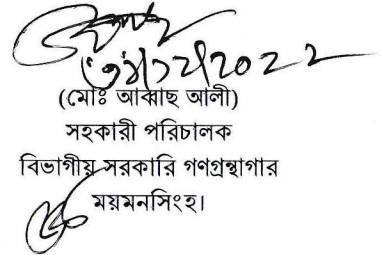 ৩১/১২/2022
(মোঃ আব্বাছ আলী)
সহকারী পরিচালক
বিভাগীয় সরকারি গণগ্রন্থাগার
ময়মনসিংহ।